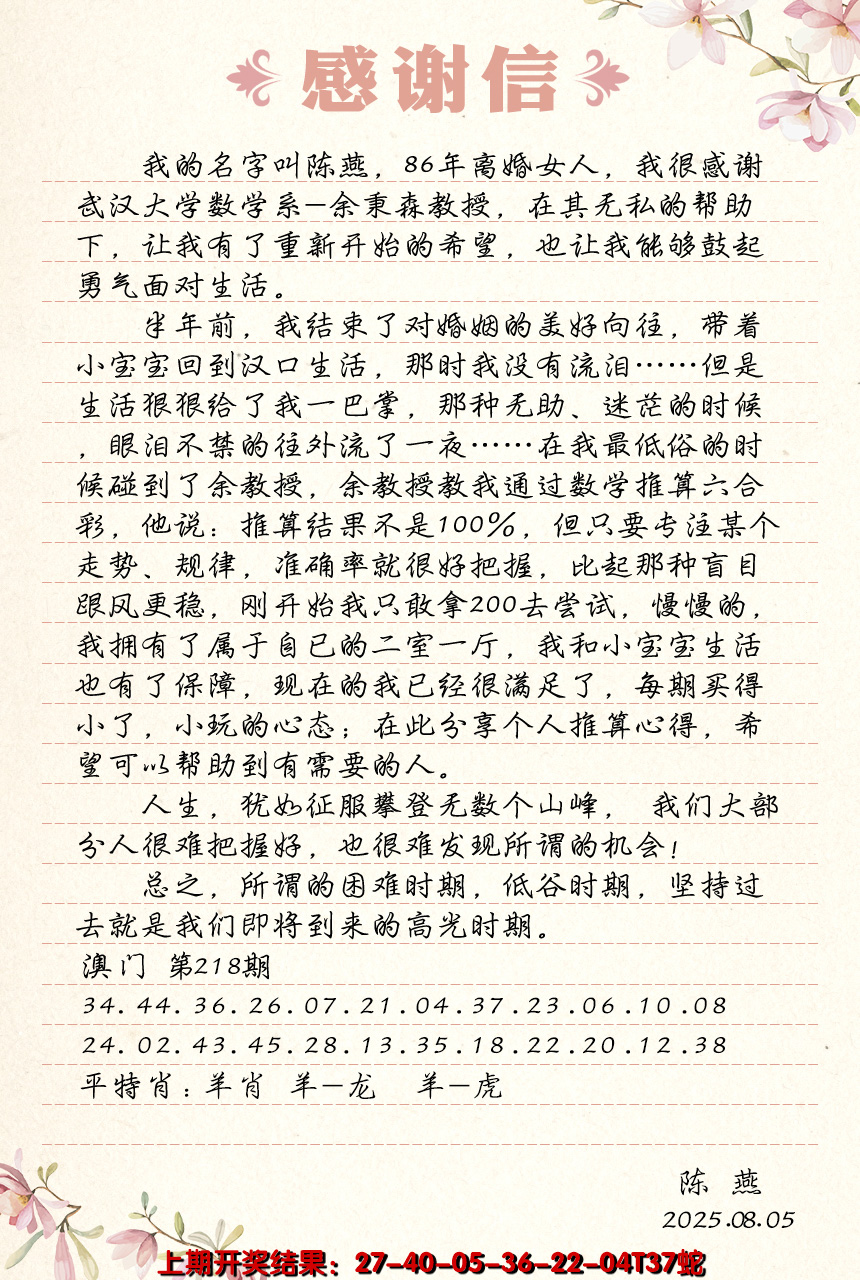 感谢信
我的名字叫陈燕，86年离婚女人，我很感谢
武汉大学数学系-余秉森教授，在其无私的帮助
下，让我有了重新开始的希望，也让我能够鼓起
勇气面对生活。
半年前，我结束了对婚姻的美好向往，带着
小宝宝回到汉口生活，那时我没有流泪……但是
生活狠狠给了我一巴掌，那种无助、迷茫的时候
，眼泪不禁的往外流了一夜……在我最低俗的时
候碰到了余教授，余教授教我通过数学推算六合
彩，他说：推算结果不是100%，但只要专注某个
走势、规律，准确率就很好把握，比起那种盲目
跟风更稳，刚开始我只敢拿200去尝试，慢慢的，
我拥有了属于自已的二室一厅，我和小宝宝生活
也有了保障，现在的我已经很满足了，每期买得
小了，小玩的心态；在此分享个人推算心得，希
望可以帮助到有需要的人。
人生，犹如征服攀登无数个山峰， 我们大部
分人很难把握好，也很难发现所谓的机会！
总之，所谓的困难时期，低谷时期，坚持过
去就是我们即将到来的高光时期。
澳门 第218期
34.44.36.26.07.21.04.37.23.06.10.08
24.02.43.45.28.13.35.18.22.20.12.38
平特肖：羊肖 羊-龙 羊-虎
陈 燕
2025.08.05
上期开奖结果：27-40-05-36-22-04T37蛇